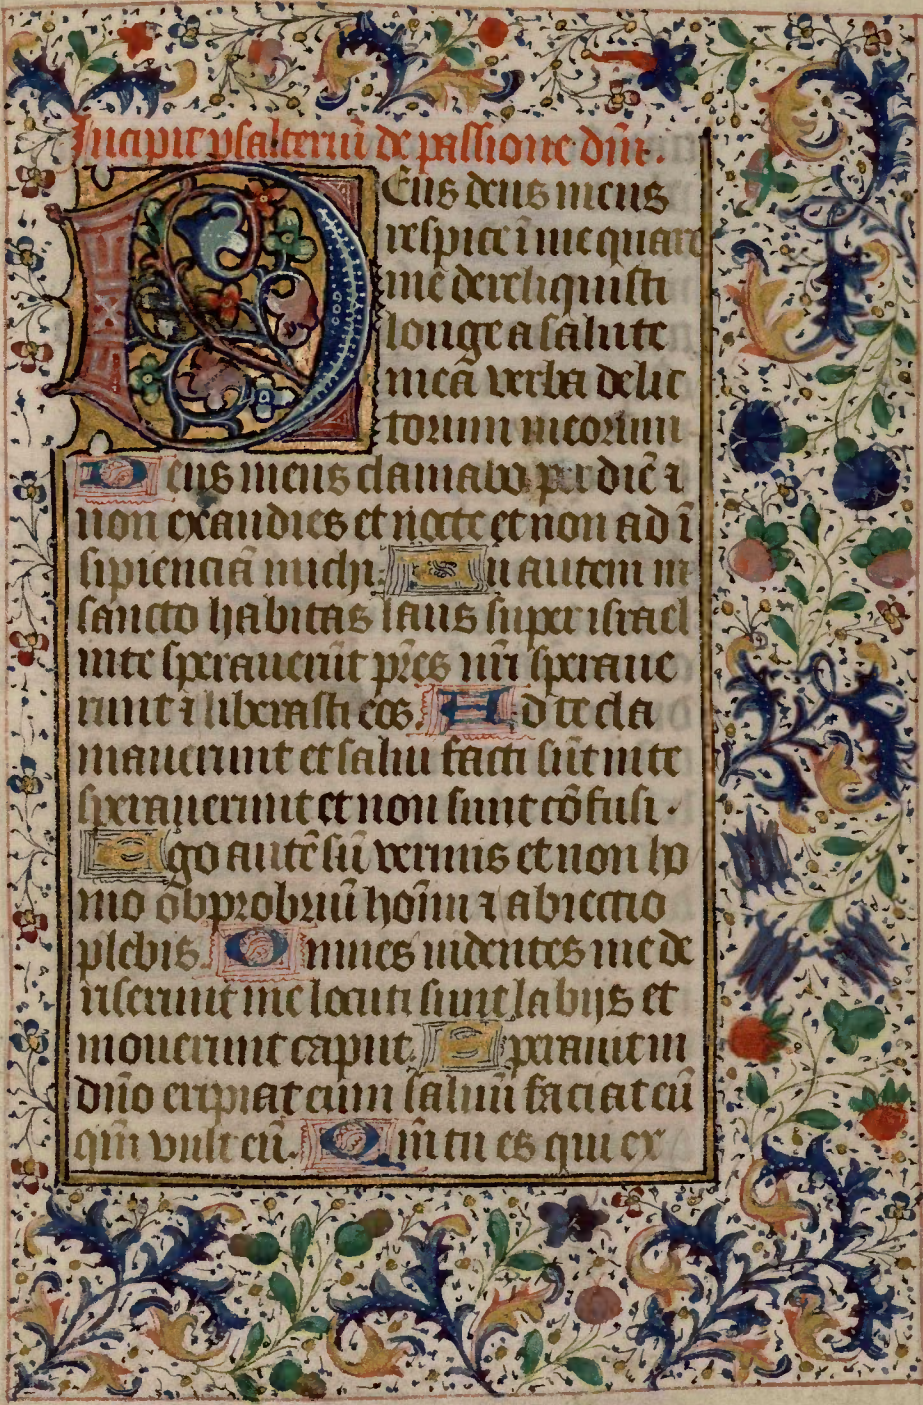 Incipit psalteriū de passione dñi.
Deus deus meus
respice ī me quare
me dereliquisti
longe a salute
meā verba delic
torum meorum
Deus meus clamabo per diē ⁊
non exaudies et nocte et non ad ī
sipienciā michi. Tu autem in
sancto habitas laus super israel
in te sperauerūt pr̄es nr̄i speraue
runt ⁊ liberasti eos. Ad te cla
mauerunt et salui facti sūt in te
sperauerunt et non sunt cōfusi.
Ego autē sū vermis et non ho
mo obprobriū hoīm ⁊ abiectio
plebis. Omnes uidentes me de
riserunt me locuti sunt labijs et
mouerunt caput. Sperauit in
dño eripiat eum saluū faciat eū
qm̄ vult eū. Qm̄ tu es qui ex